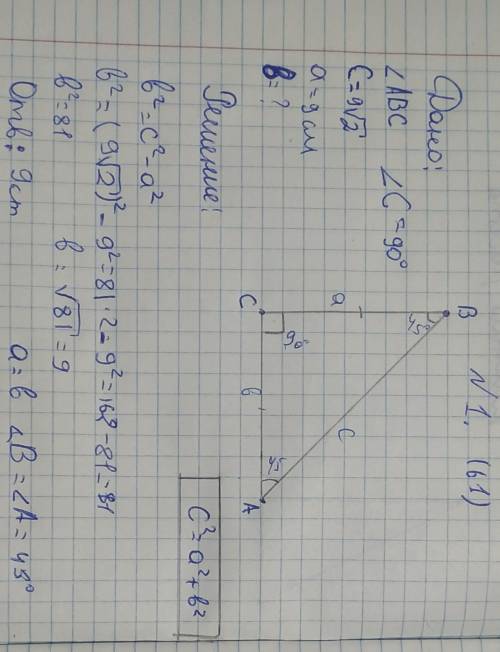 N 1. (61)
Дано:
∠ABC ∠C = 90°
C = 9√2
a = 9 см
b = ?
B
45°
a
C
90°
c
b
45
A
C² = a² + b²
Решение:
b² = c² - a²
b² = (9√2)² - 9² = 81 · 2 = 9² = 162 - 81 = 81
b² = 81 b = √81 = 9
Отв: 9 cm a = b ∠B = ∠A = 45°